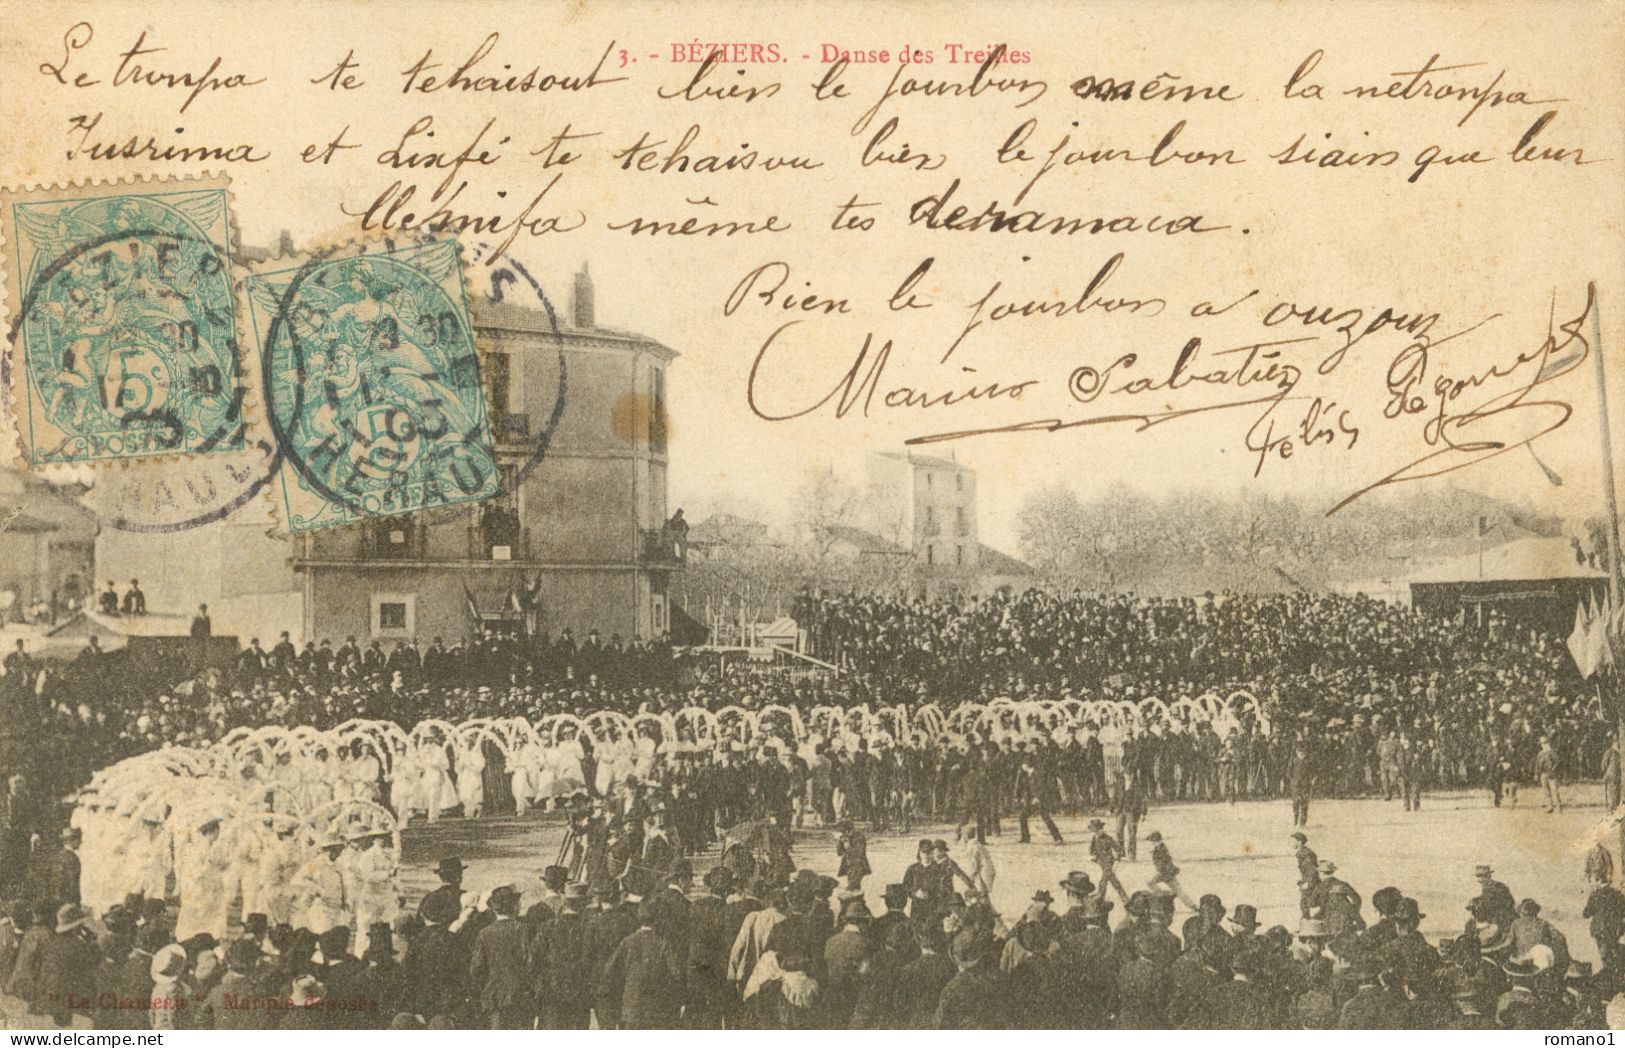 3. - BÉZIERS. - Danse des Treilles
Le tronpa te tehaisout bien le jourbon même la netronpa
Jusrima et Lixfé te tehaisou bien le jourbon siain que leur
même tes deramaca.
Rien le jourbon a ouzouz
Marius Sabatiez
Felisse
5
POSTES
BEZIERS
HERAULT
5
POSTES
" Le Chameau ", Marque déposée
romano1